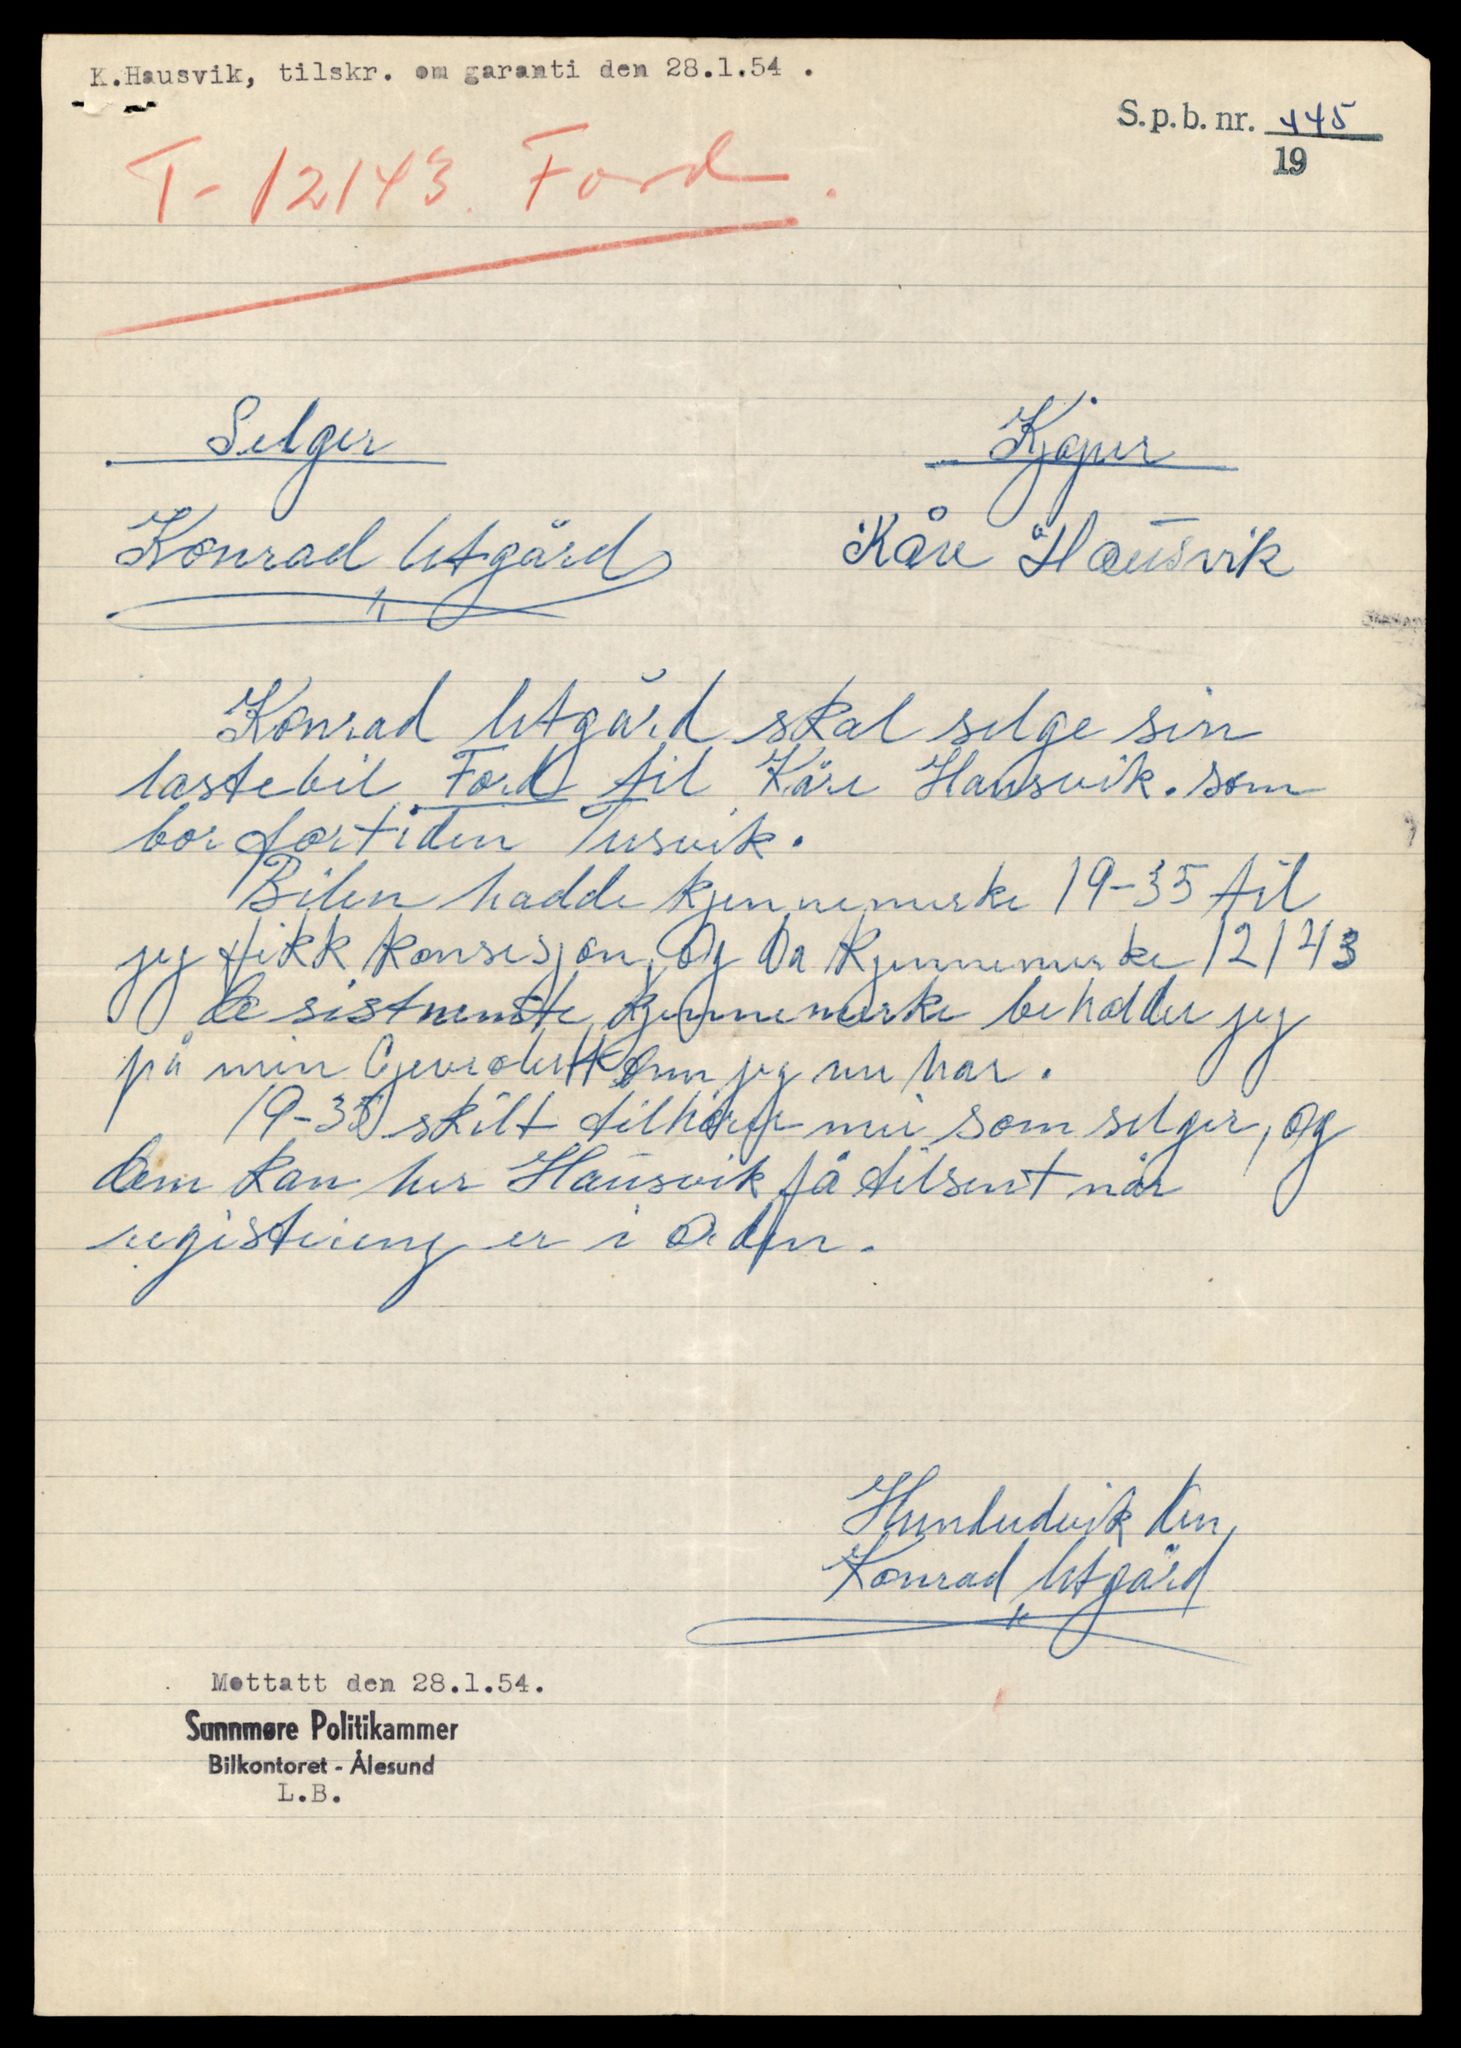 K.Hausvik, tilskr. om garanti den 28.1.54 .
S.p.b. nr. 445
19
T-12143. Ford.
Selger
Kjøper
Konrad Utgård
Kåre Hausvik
Konrad Utgård skal selge sin
lastebil Ford til Kåre Hausvik. som
bor fortiden Tusvik.
Bilen hadde kjennemerke 19-35 til
jeg fikk konsesjon, og da kjennemerke 12143
de sistnemte kjennemerke beholder jeg
på min som jeg nu har.
19-35 skilt tilhører mei som selger, og
dem kan her Hausvik få tilsent når
registreing er i orden.
Hundeidvik den,
Konrad Utgård
Mottatt den 28.1.54.
Sunnmøre Politikammer
Bilkontoret - Ålesund
L.B.